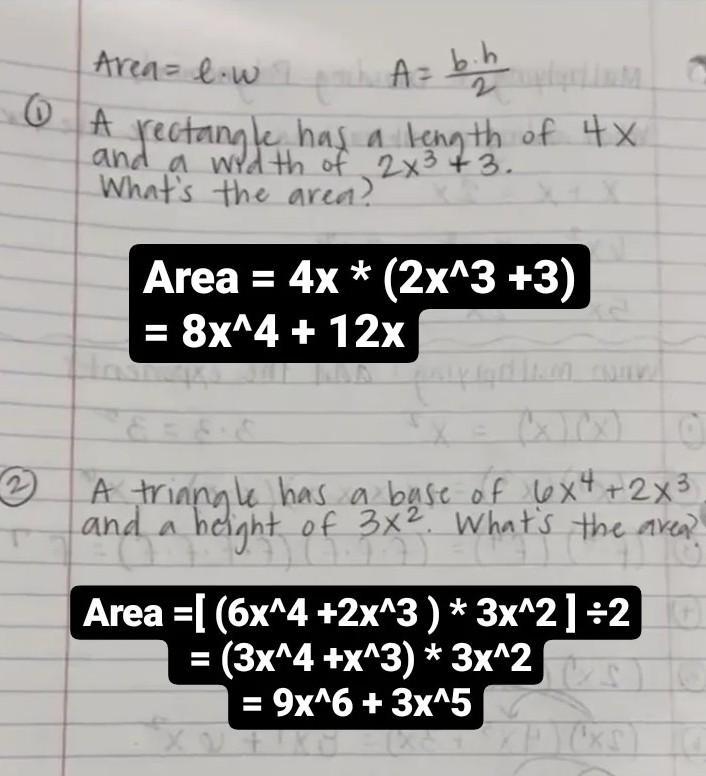 Area = l·w A = b·h/2
① A rectangle has a length of 4x
and a width of 2x³ + 3.
What's the area?
Area = 4x * (2x^3 +3)
= 8x^4 + 12x
② A triangle has a base of 6x⁴ + 2x³
and a height of 3x². What's the area?
Area =[ (6x^4 +2x^3 ) * 3x^2 ] ÷2
= (3x^4 +x^3) * 3x^2
= 9x^6 + 3x^5